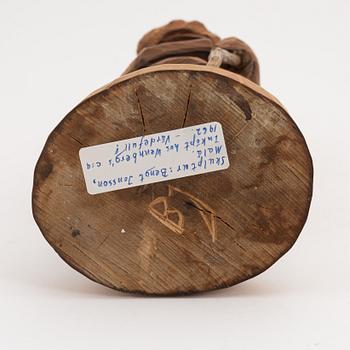 Skulptur: Bengt Jonsson,
Malå.
Inköpt hos Wennberg's c:a
1962. - Värdefull!
BJ